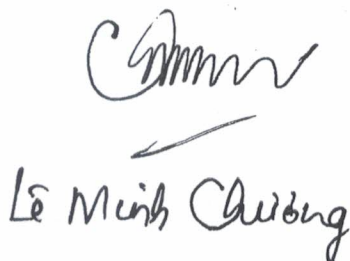 Lê Minh Chương